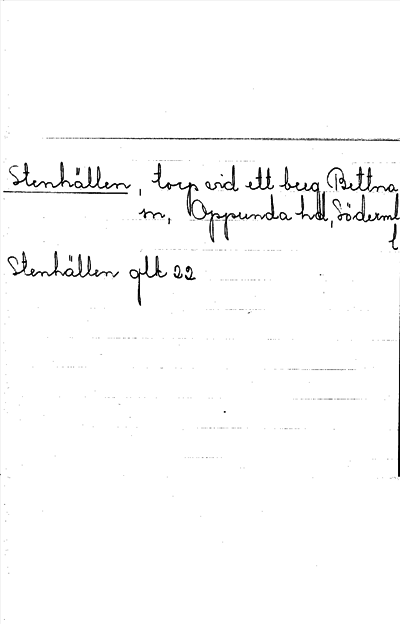 Stenhällen, torp vid ett berg Bettna
sn, Oppunda hd, Söderml
l
Stenhällen glk 22